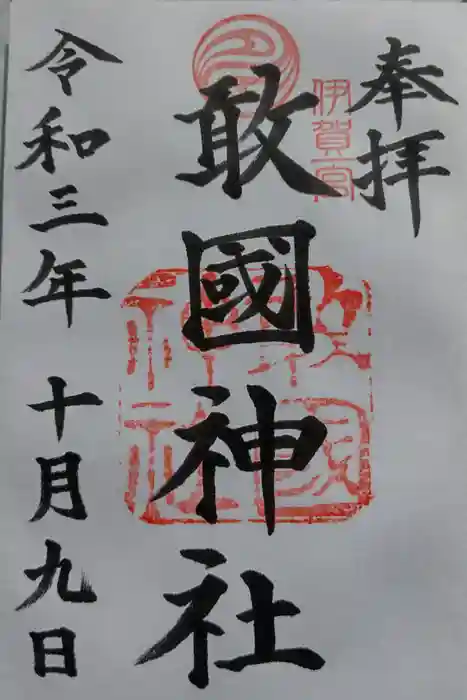 奉拝
伊賀宮
敢國神社
敢國神社
令和三年 十月九日